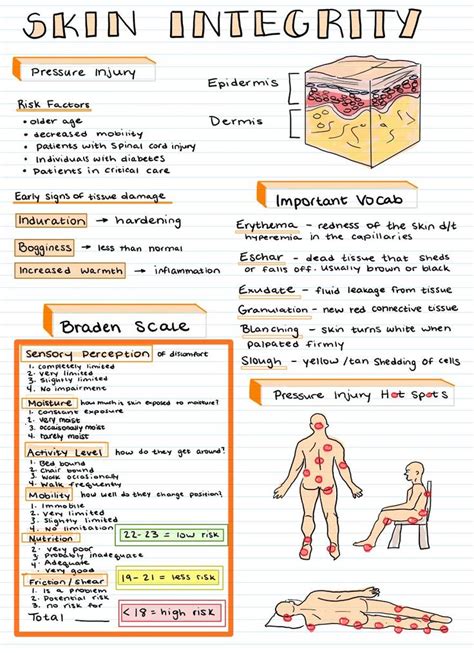 SKIN INTEGRITY
Pressure Injury
Risk Factors
• older age
• decreased mobility
• Patients with Spinal cord injury
• Individuals with diabetes
• Patients in critical care
Early Signs of tissue damage
Induration → hardening
Bogginess → less than normal
Increased warmth → inflammation
Epidermis
Dermis
Important Vocab
Erythema - redness of the skin d/t
hyperemia in the capillaries
Eschar - dead tissue that sheds
or falls off. Usually brown or black
Exudate - fluid leakage from tissue
Granulation - new red connective tissue
Blanching - skin turns white when
palpated firmly
Slough - yellow/tan shedding of cells
Braden Scale
Sensory Perception of discomfort
1. completely limited
2. very limited
3. Slightly limited
4. No impairment
Moisture how much is skin exposed to moisture?
1. constant exposure
2. very moist
3. occasionally moist
4. rarely moist
Activity Level how do they get around?
1. Bed bound
2. chair bound
3. walk occasionally
4. walk frequently
Mobility how well do they change position?
1. Immobile
2. very limited
3. Slightly limited
4. No limitation
Nutrition
1. very poor
2. Probably inadequate
3. Adequate
4. very good
Friction/Shear
1. is a problem
2. Potential risk
3. no risk for
Total
22-23 = low risk
19-21 = less risk
<18 = high risk
Pressure Injury Hot Spots